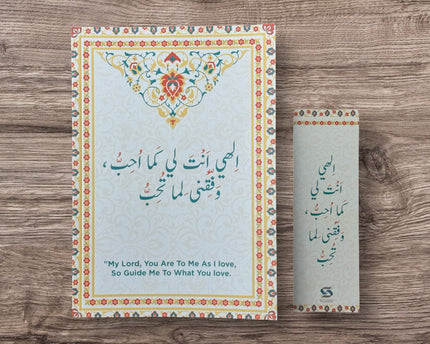 اِلهي اَنْتَ لي كَما اُحِبُّ،
وَفِّقْني لِما تُحِبُّ
"My Lord, You Are To Me As I love,
So Guide Me To What You love.
اِلهي
اَنْتَ لي
كَما اُحِبُّ،
وَفِّقْني لِما
تُحِبُّ